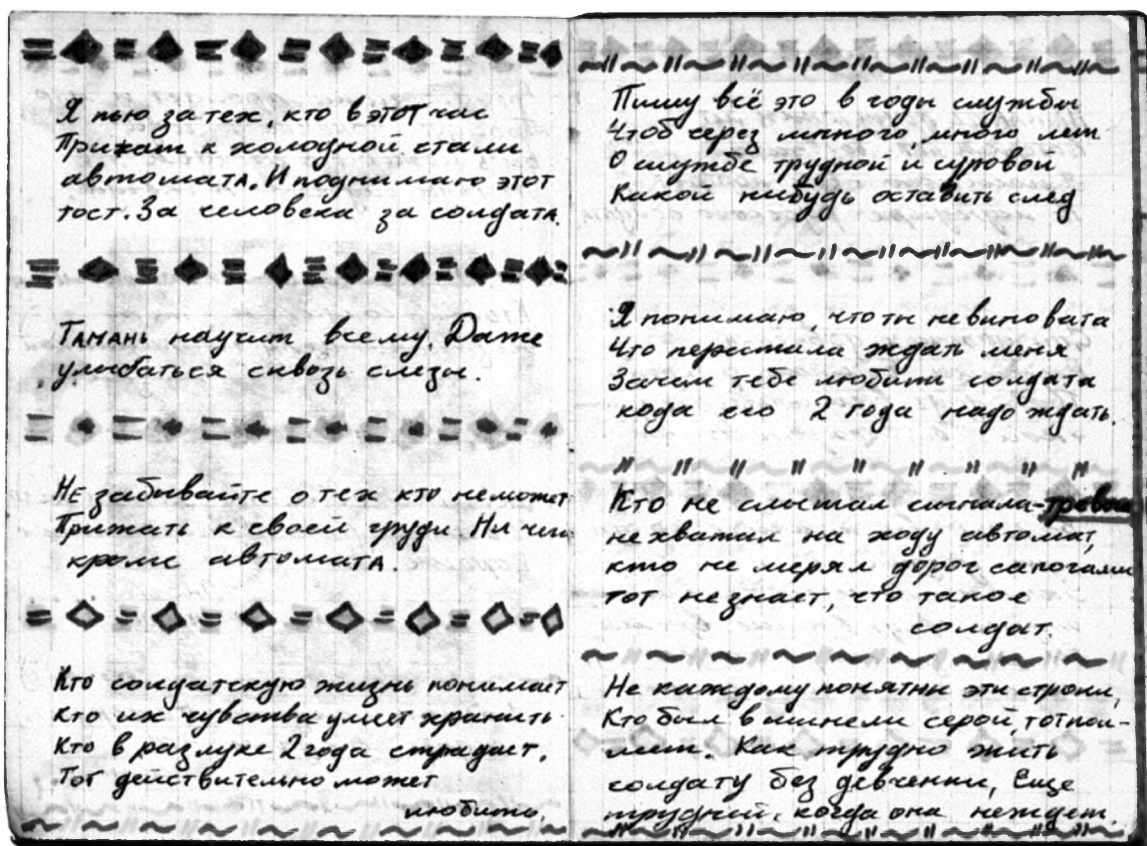 Я пью за тех, кто в этот час
Прижат к холодной стали
автомата. И поднимаю этот
тост. За человека за солдата.
Тамань научит всему. Даже
улыбаться сквозь слезы.
Не забывайте о тех кто неможет
Прижать к своей груди. Ни чего
кроме автомата.
Кто солдатскую жизнь понимает
Кто их чувства умеет хранить
Кто в разлуке 2 года страдает.
Тот действительно может
любить.
Пишу всё это в годы службы
Чтоб через много много лет
О службе трудной и суровой
Какой нибудь оставить след
Я понимаю, что ты невиновата
Что перестала ждать меня
Зачем тебе любить солдата
кода его 2 года надо ждать.
Кто не слышал сигнала-тревога
нехватал на ходу автомат,
кто не мерял дорог сапогами
тот незнает, что такое
солдат.
Не каждому понятны эти строки,
Кто был в шинели серой, тот пой-
мет. Как трудно жить
солдату без девченки, Еще
трудней, когда она неждет.